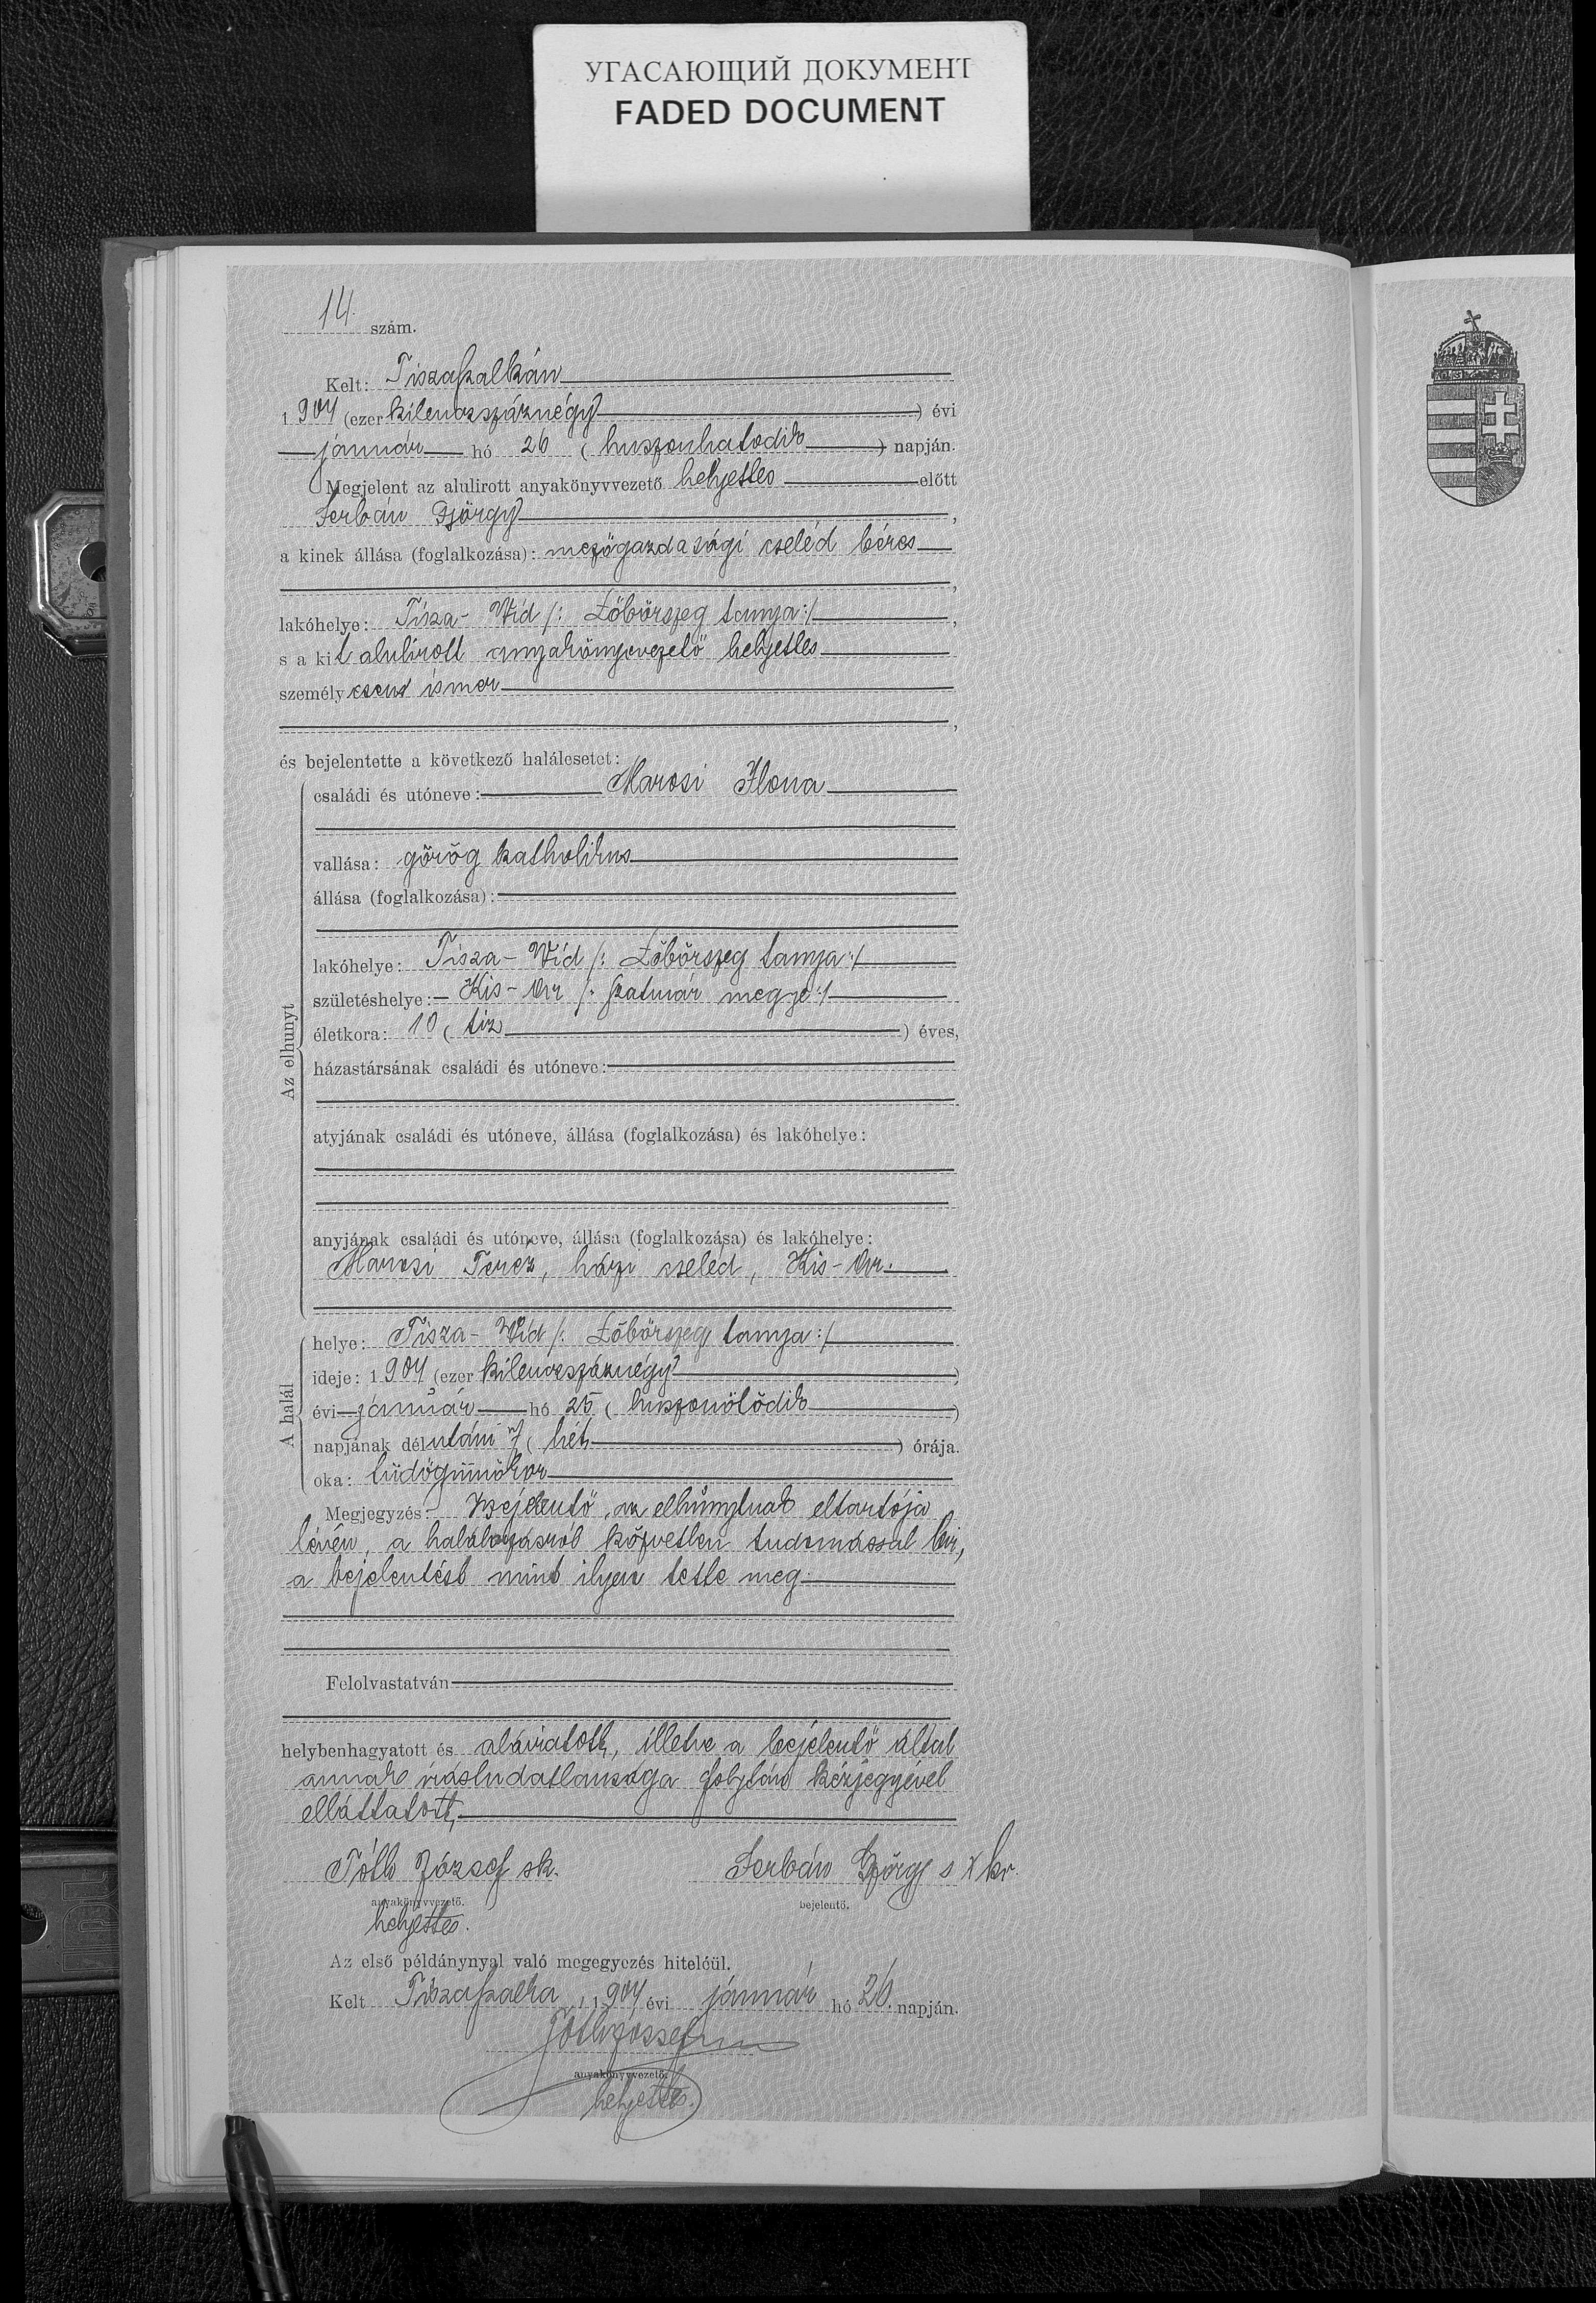 УГАСАЮЩИЙ ДОКУМЕНТ
FADED DOCUMENT
14. szám.
Kelt: Tiszaszalkán
1904 (ezer kilenczszáznégy) évi
január hó 26 (huszonhatodik) napján.
Megjelent az alulirott anyakönyvvezető helyettes előtt
Serbán György,
a kinek állása (foglalkozása): mezőgazdasági cseléd béres
lakóhelye: Tisza-Vid /: Lőbörszeg tanya :/,
s a kit alulirott anyakönyvvezető helyettes
személyesen ismer
és bejelentette a következő halálesetet:
Az elhunyt
családi és utóneve: Marosi Ilona
vallása: görög katholikus
állása (foglalkozása):
lakóhelye: Tisza-Vid /: Lőbörszeg tanya :/
születéshelye: Kis-Ar /: Szatmár megye :/
életkora: 10 (tiz) éves,
házastársának családi és utóneve:
atyjának családi és utóneve, állása (foglalkozása) és lakóhelye:
anyjának családi és utóneve, állása (foglalkozása) és lakóhelye:
Marosi Teréz, házi cseléd, Kis-Ar.
A halál
helye: Tisza-Vid /: Lőbörszeg tanya :/
ideje: 1904 (ezer kilenczszáznégy)
évi január hó 25 (huszonötödik)
napjának délutáni 7 (hét) órája.
oka: tüdőgümőkor
Megjegyzés: Bejelentő, az elhúnytnak eltartója
lévén, a halálozásról közvetlen tudomással bir,
a bejelentést mint ilyen tette meg.
Felolvastatván
helybenhagyatott és aláiratott, illetve a bejelentő által
annak irástudatlansága folytán kézjegyével
elláttatott,
Tóth József sk. Serbán György s x kv.
anyakönyvvezető. bejelentő.
helyettes.
Az első példánynyal való megegyezés hiteléül.
Kelt Tiszaszalka, 1904 évi január hó 26. napján.
Tóth József
anyakönyvvezető.
helyettes.